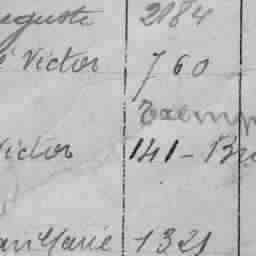 auguste 2184
é Victor 760
Exemp
Victor 141 - Br
an Marie 1321